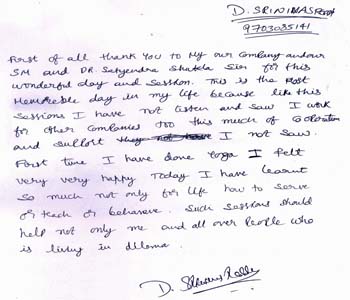 D. SRINIVAS REDDY
9703035141
First of all thank you to my our company and our
SM and DR. Satyendra Shukla Sir for this
wonderful day and session. This is the most
Memorible day in my life because like this
sessions I have not listen and saw I work
for other companies too this much of
and support they not have I not saw.
First time I have done yoga I felt
very very happy Today I have learnt
so much not only for life how to serve
or teach or behaveve. Such sessions should
help not only me and all over People who
is living in dilema.